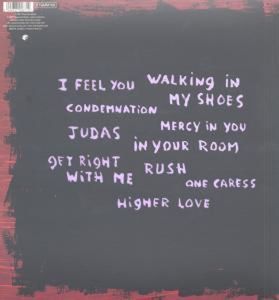 I FEEL YOU
WALKING IN
MY SHOES
CONDEMNATION
MERCY IN YOU
JUDAS
IN YOUR ROOM
get RIGHT
WITH ME
RUSH
ONE CARESS
HIGHER LOVE